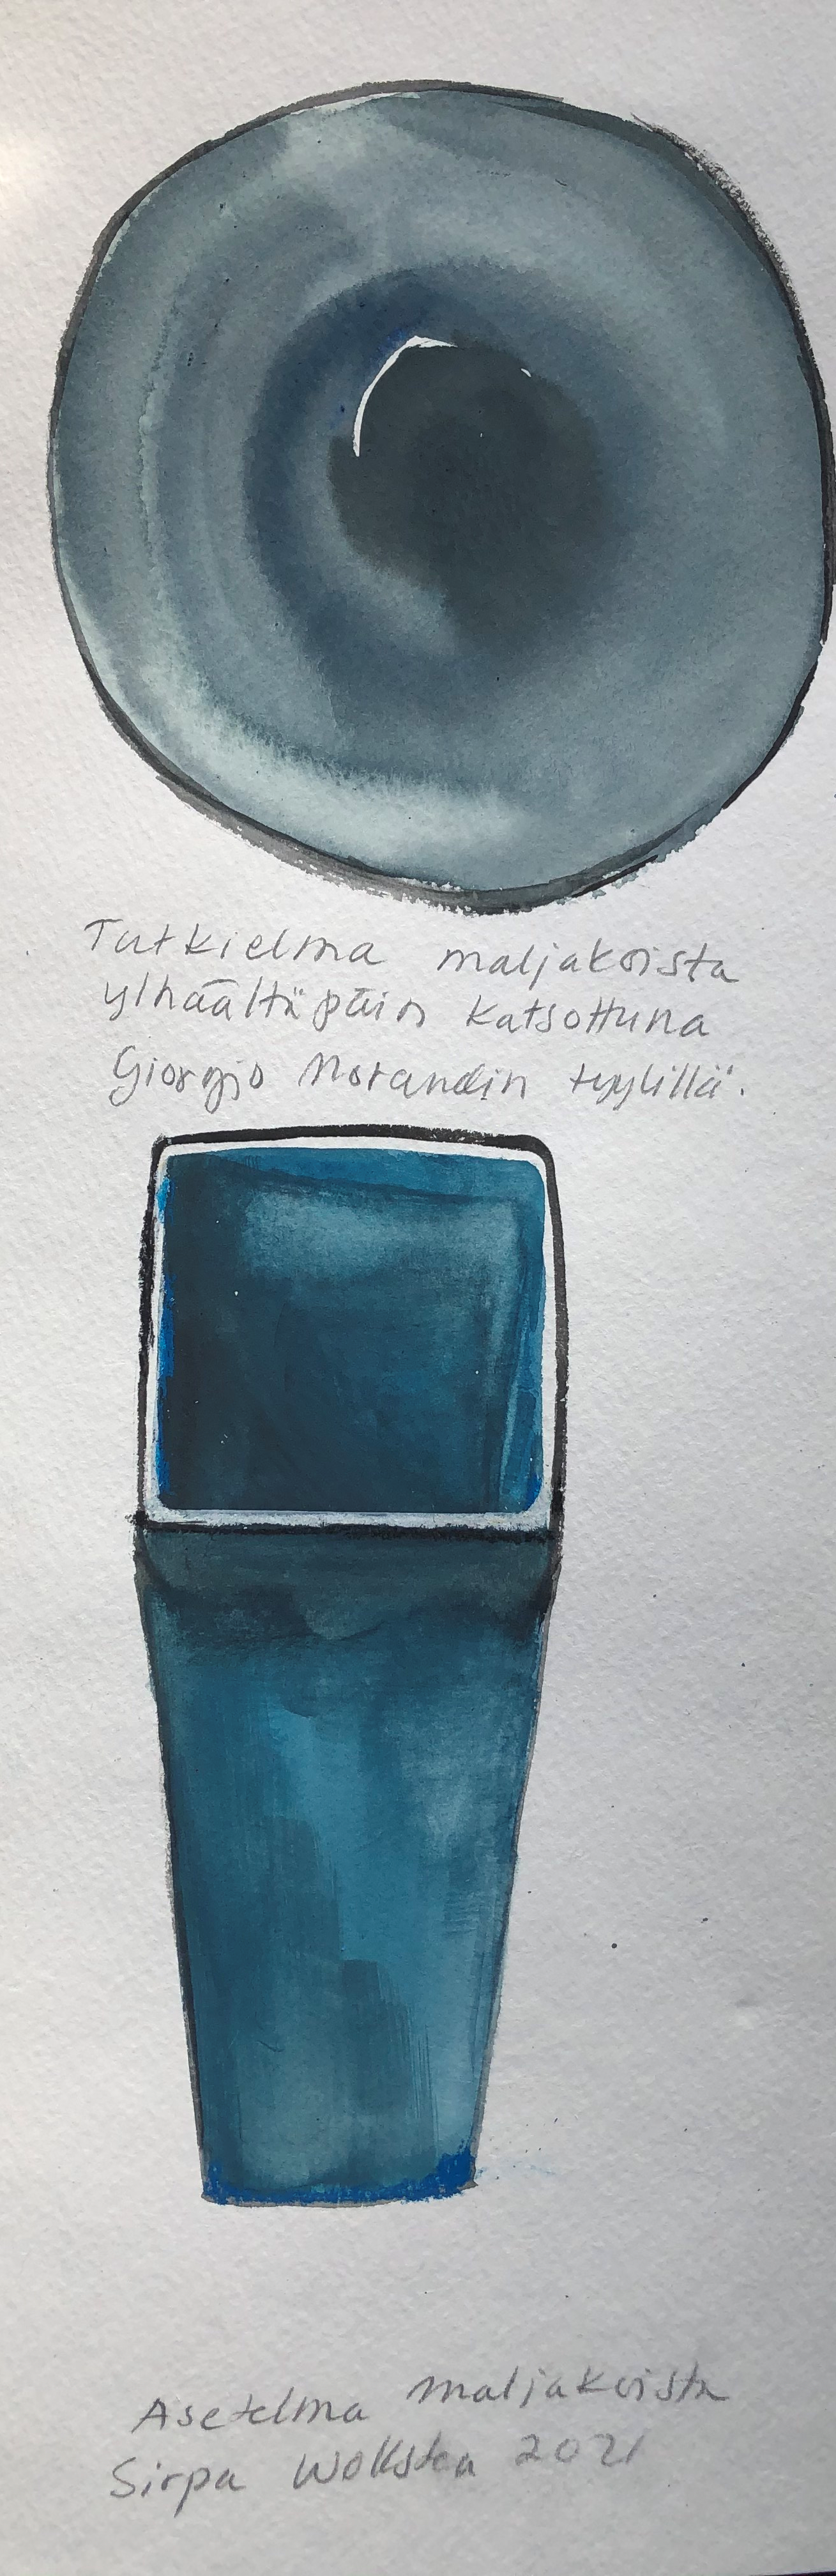 Tutkielma maljakoista
ylhäältäpäin katsottuna
Giorgio Morandin tyylillä.
Asetelma maljakoista
Sirpa 2021